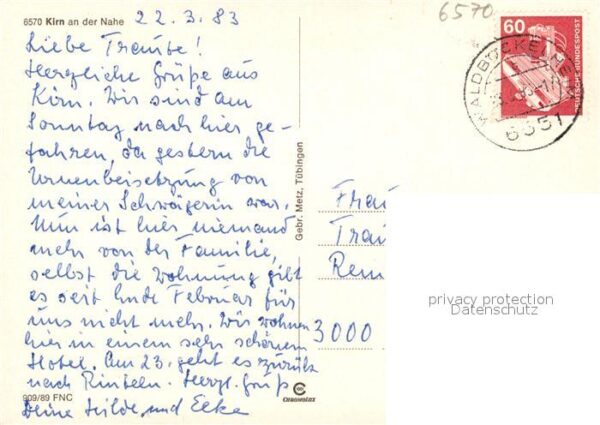 6570 Kirn an der Nahe
22.3.83
6570
Liebe Traute!
Herzliche Grüße aus
Kirn. Wir sind am
Sonntag nach hier ge-
fahren, da gestern die
Urnenbeisetzung von
meiner Schwägerin war.
Nun ist hier niemand
mehr von der Familie,
selbst die Wohnung gibt
es seit Ende Februar für
uns nicht mehr. Wir wohnen
hier in einem sehr schönen
Hotel. Am 23. geht es zurück
nach Rinteln. Herzl. Grüße
Deine Hilde und Elke
909/89 FNC
Gebr. Metz, Tübingen
CHROMOLUX
60
DEUTSCHE BUNDESPOST
WALDBÖCKELHEIM
6551
Frau
Trau
Rem
3000
privacy protection
Datenschutz